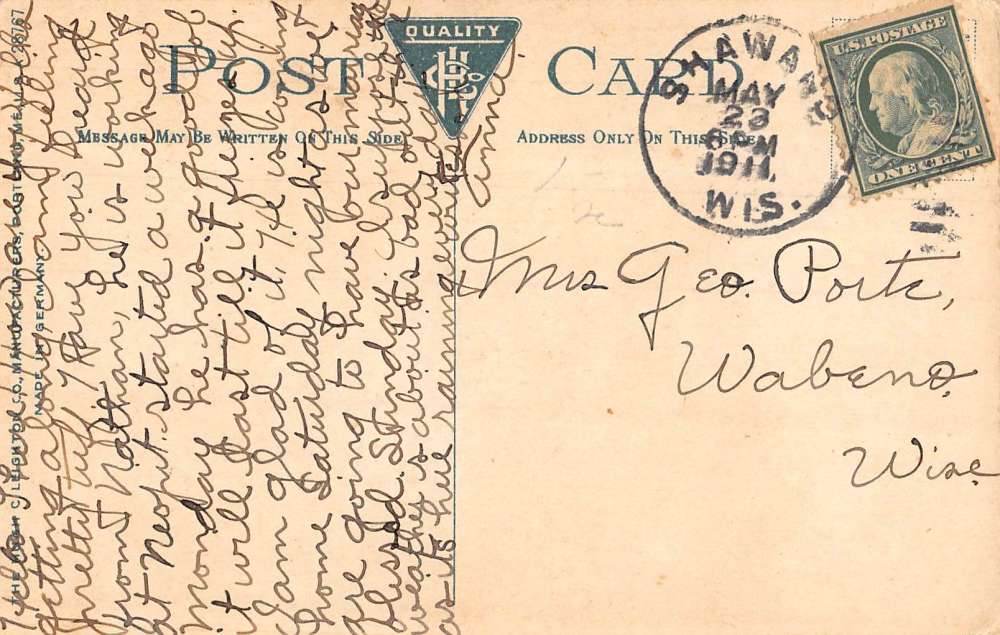 POST CARD
QUALITY
MESSAGE MAY BE WRITTEN ON THIS SIDE
ADDRESS ONLY ON THIS SIDE
SHAWANO
MAY
23
6 PM
1911
WIS.
U.S. POSTAGE
ONE CENT
THE HUGH C. LEIGHTON CO., MANUFACTURERS, PORTLAND, ME., U.S.A. 28767
MADE IN GERMANY
getting along am feeling
pretty tuff. Have you heard
from Nathan, he is working
at Neopit. started a week ago
monday he has a good job
it will last till it freeze up.
I am glad of it. He is coming
home Saturday night as we
are going to have our maria
blessed Sunday.
weather is about as bad out
as its here raining every day
Anna
Mrs Geo. Porte,
Wabeno
Wise